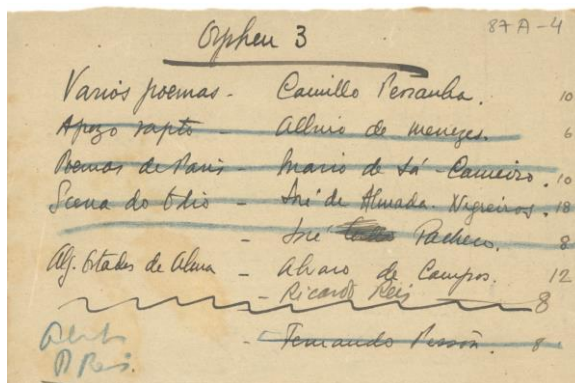 Orpheu 3
87A-4
Varios poemas - Camillo Pessanha. 10
Apozo rapto - Albino de Menezes. 6
Poemas de Paris - Mario de Sá-Carneiro. 10
Scena do Odio - José de Almada-Negreiros. 18
- José Pacheco. 8
Alg. Estados de Alma - Alvaro de Campos. 12
- Ricardo Reis 8
- Fernando Pessoa. 8
R Reis.